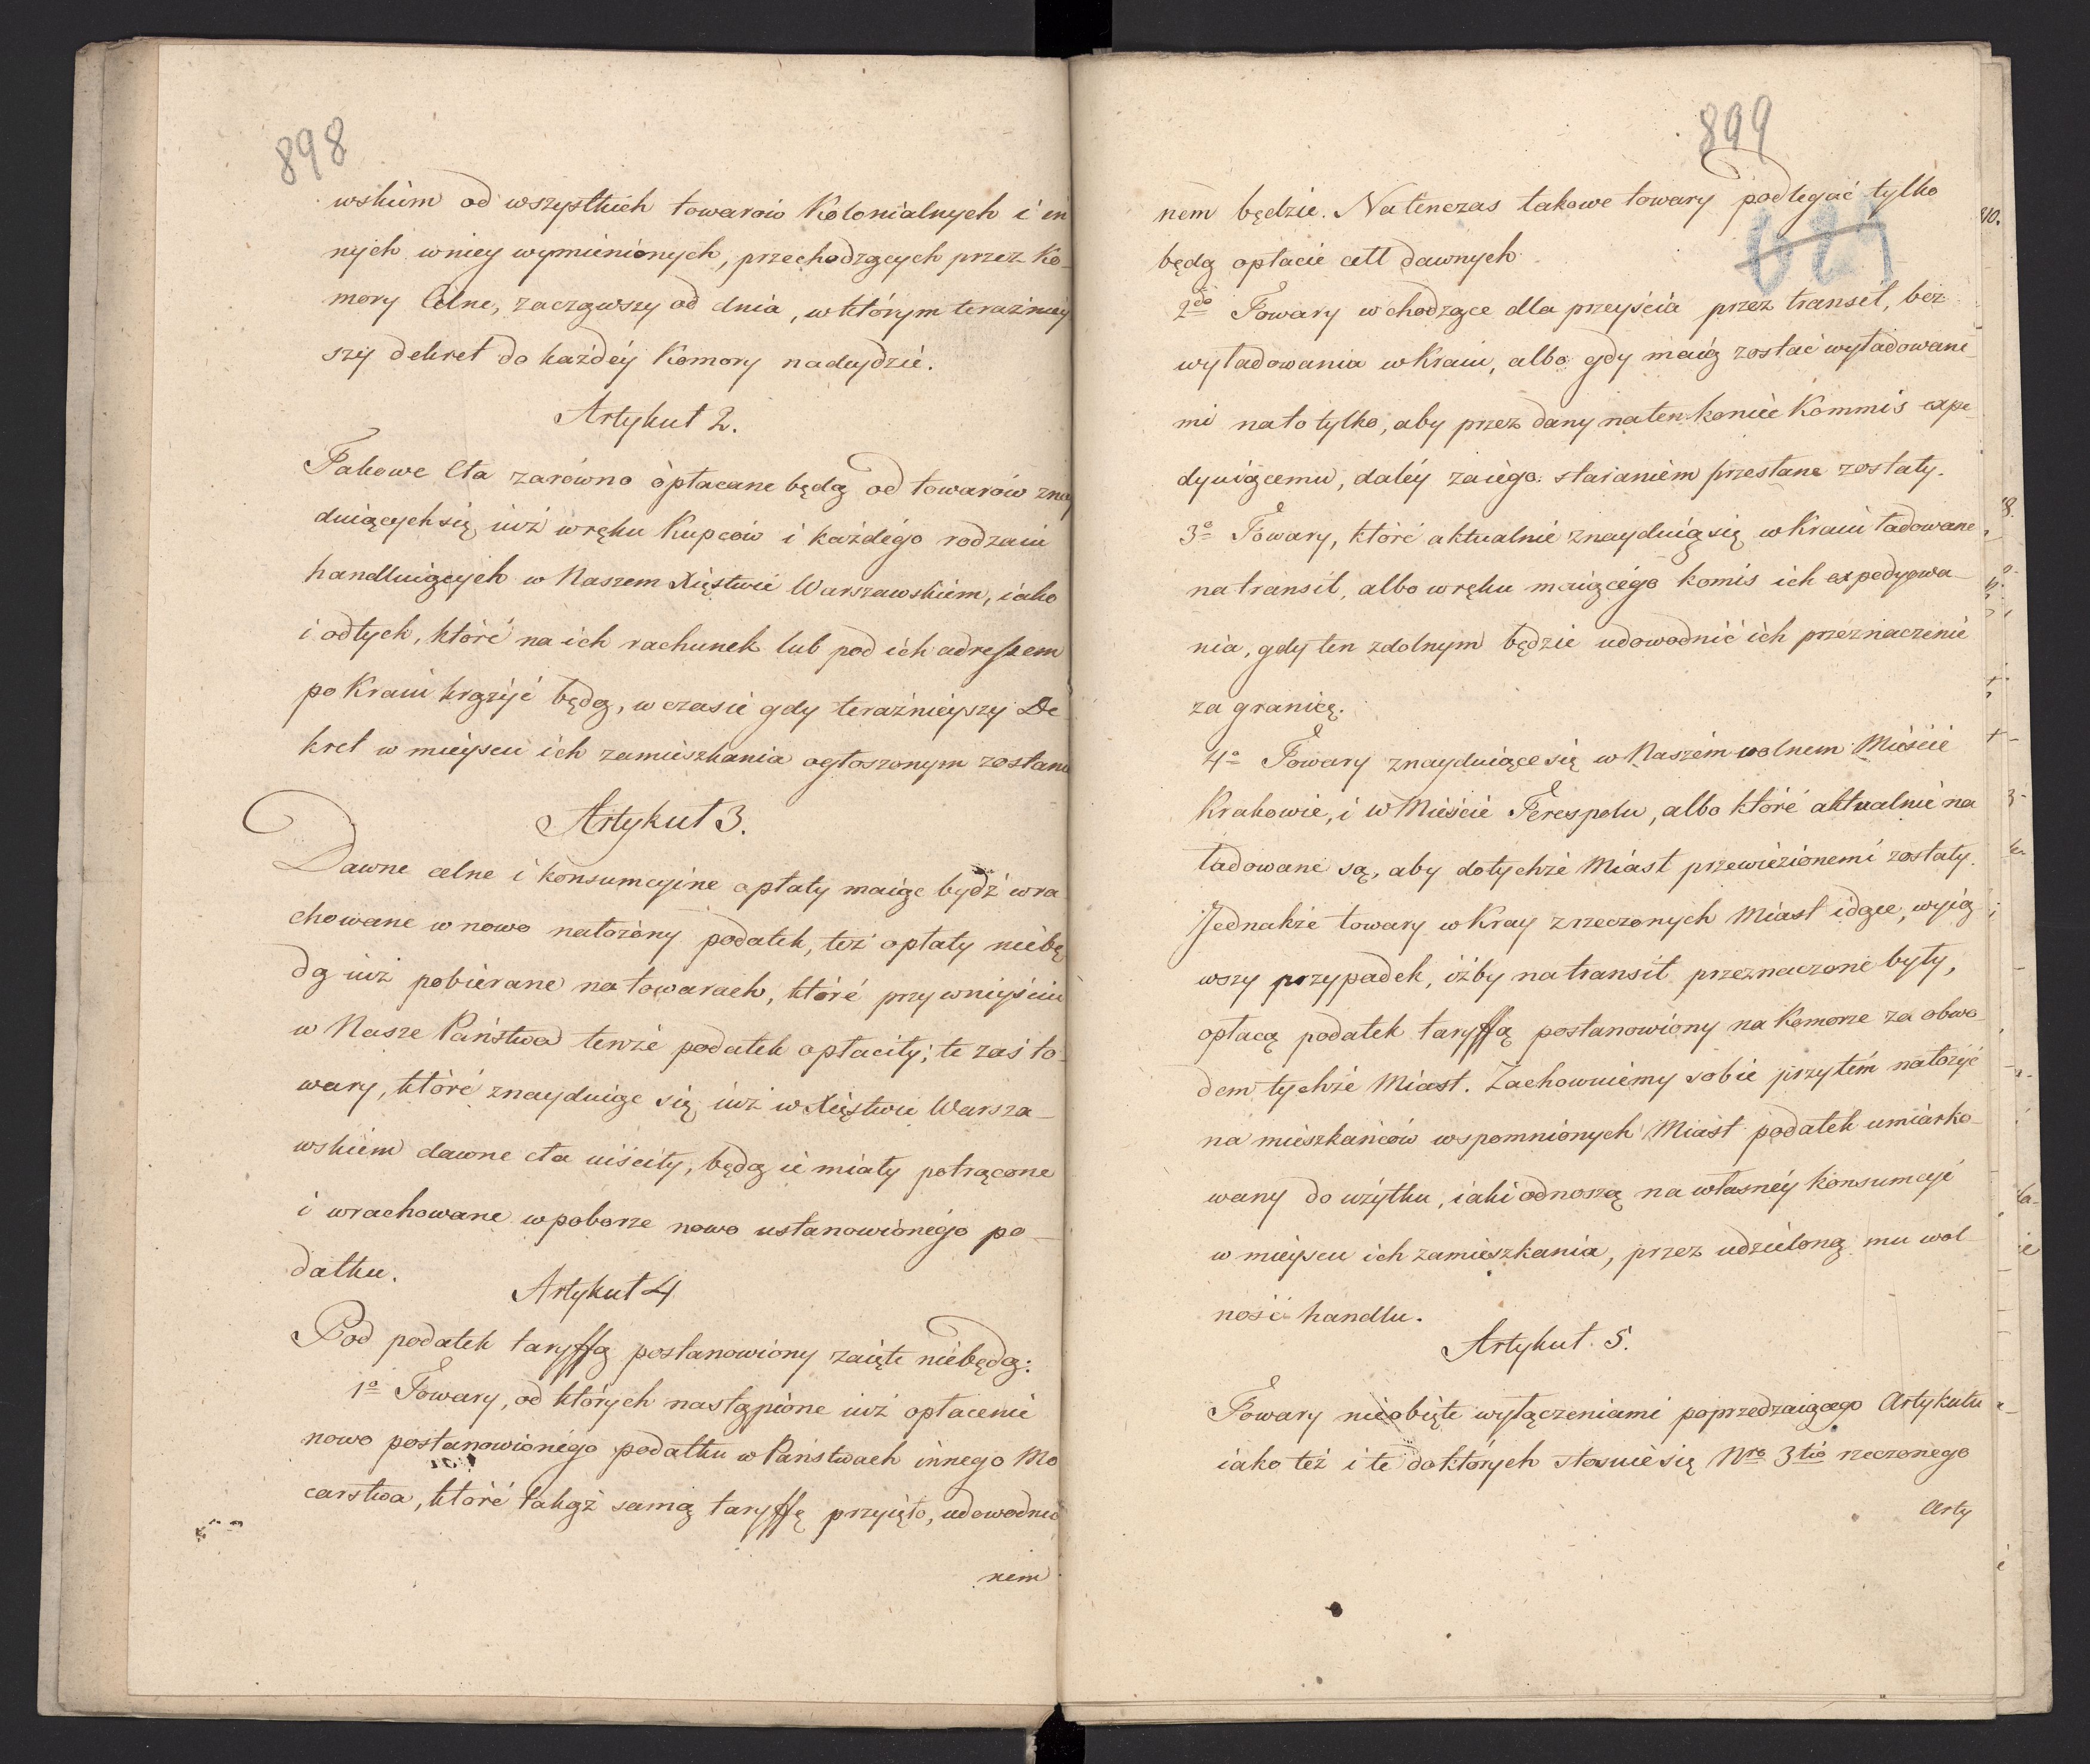 898
wskiem od wszystkich towarów Kolonialnych i in
nych wniey wymienionych, przechodzących przez Ko-
mory Celne, zacząwszy od dnia, w którym teraźniey
szy dekret do każdéy Komory nadeydzie.
Artykuł 2.
Takowe Cła zarówno opłacane będą od towarów znay
duiących się iuż w ręku Kupców i każdégo rodzaiu
handluiących w Naszem Xięstwie Warszawskiem, iako
i od tych, któré na ich rachunek lub pod ich adressem
po Kraiu krążyć będą, w czasie gdy teraźnieyszy De
kret w mieyscu ich zamieszkania ogłoszonym zostanie
Artykuł 3.
Dawne celne i konsumcyine opłaty maiąc bydź wra
chowane w nowo nałożony podatek, też opłaty niebę
dą iuż pobierane na towarach, któré przy wniyściu
w Nasze Państwa tenże podatek opłaciły; te zaś to
wary, któré znayduiąc się iuż w Xięstwie Warsza-
wskiem dawne cła uiściły, będą ie miały potrącone
i wrachowane w poborze nowo ustanowionégo po-
datku.
Artykuł 4
Pod podatek taryffą postanowiony zaięte niebędą:
1º Towary, od których nastąpione iuż opłacenie
nowo postanowionégo podatku w Państwach innego Mo
carstwa, któré takąż samą taryffę przyięło, udowodnio
nem
899
nem będzie. Natenczas takowe towary podlegać tylko
będą opłacie cełł dawnych
2do Towary wchodzące dla przeyścia przez transit, bez
wyładowania w Kraiu, albo gdy maią zostać wyładowane
mi na to tylko, aby przez dany na ten koniec Kommis expe
dyuiącemu, daléy za iégo staraniem przesłane zostały.
3º Towary, któré aktualnie znayduią się w Kraiu ładowane
na transit, albo w ręku maiącégo komis ich expedyowa-
nia, gdy ten zdolnym będzie udowodnić ich przeznaczenie
za granicę.
4º Towary znayduiące się w Naszém wolnem Mieście
Krakowie, i w Mieście Terespolu, albo któré aktualnie na
ładowane są, aby do tychże Miast przewiezionemi zostały.
Jednakże towary w Kray z rzeczonych Miast idące, wyią
wszy przypadek, iżby na transit przeznaczone były,
opłacą podatek taryffą postanowiony na Komorze za obwo
dem tychże Miast. Zachowuiemy sobie przytém nałożyć
na mieszkańców wspomnionych Miast podatek umiarko-
wany do użytku, iaki odnoszą na własnéy Konsumcyi
w mieyscu ich zamieszkania, przez udzieloną mu wol
ność handlu.
Artykuł 5.
Towary nieobięte wyłączeniami poprzedzaiącego Artykułu
iako też i te do których stosuie się Nro 3tio rzeczonego
Arty